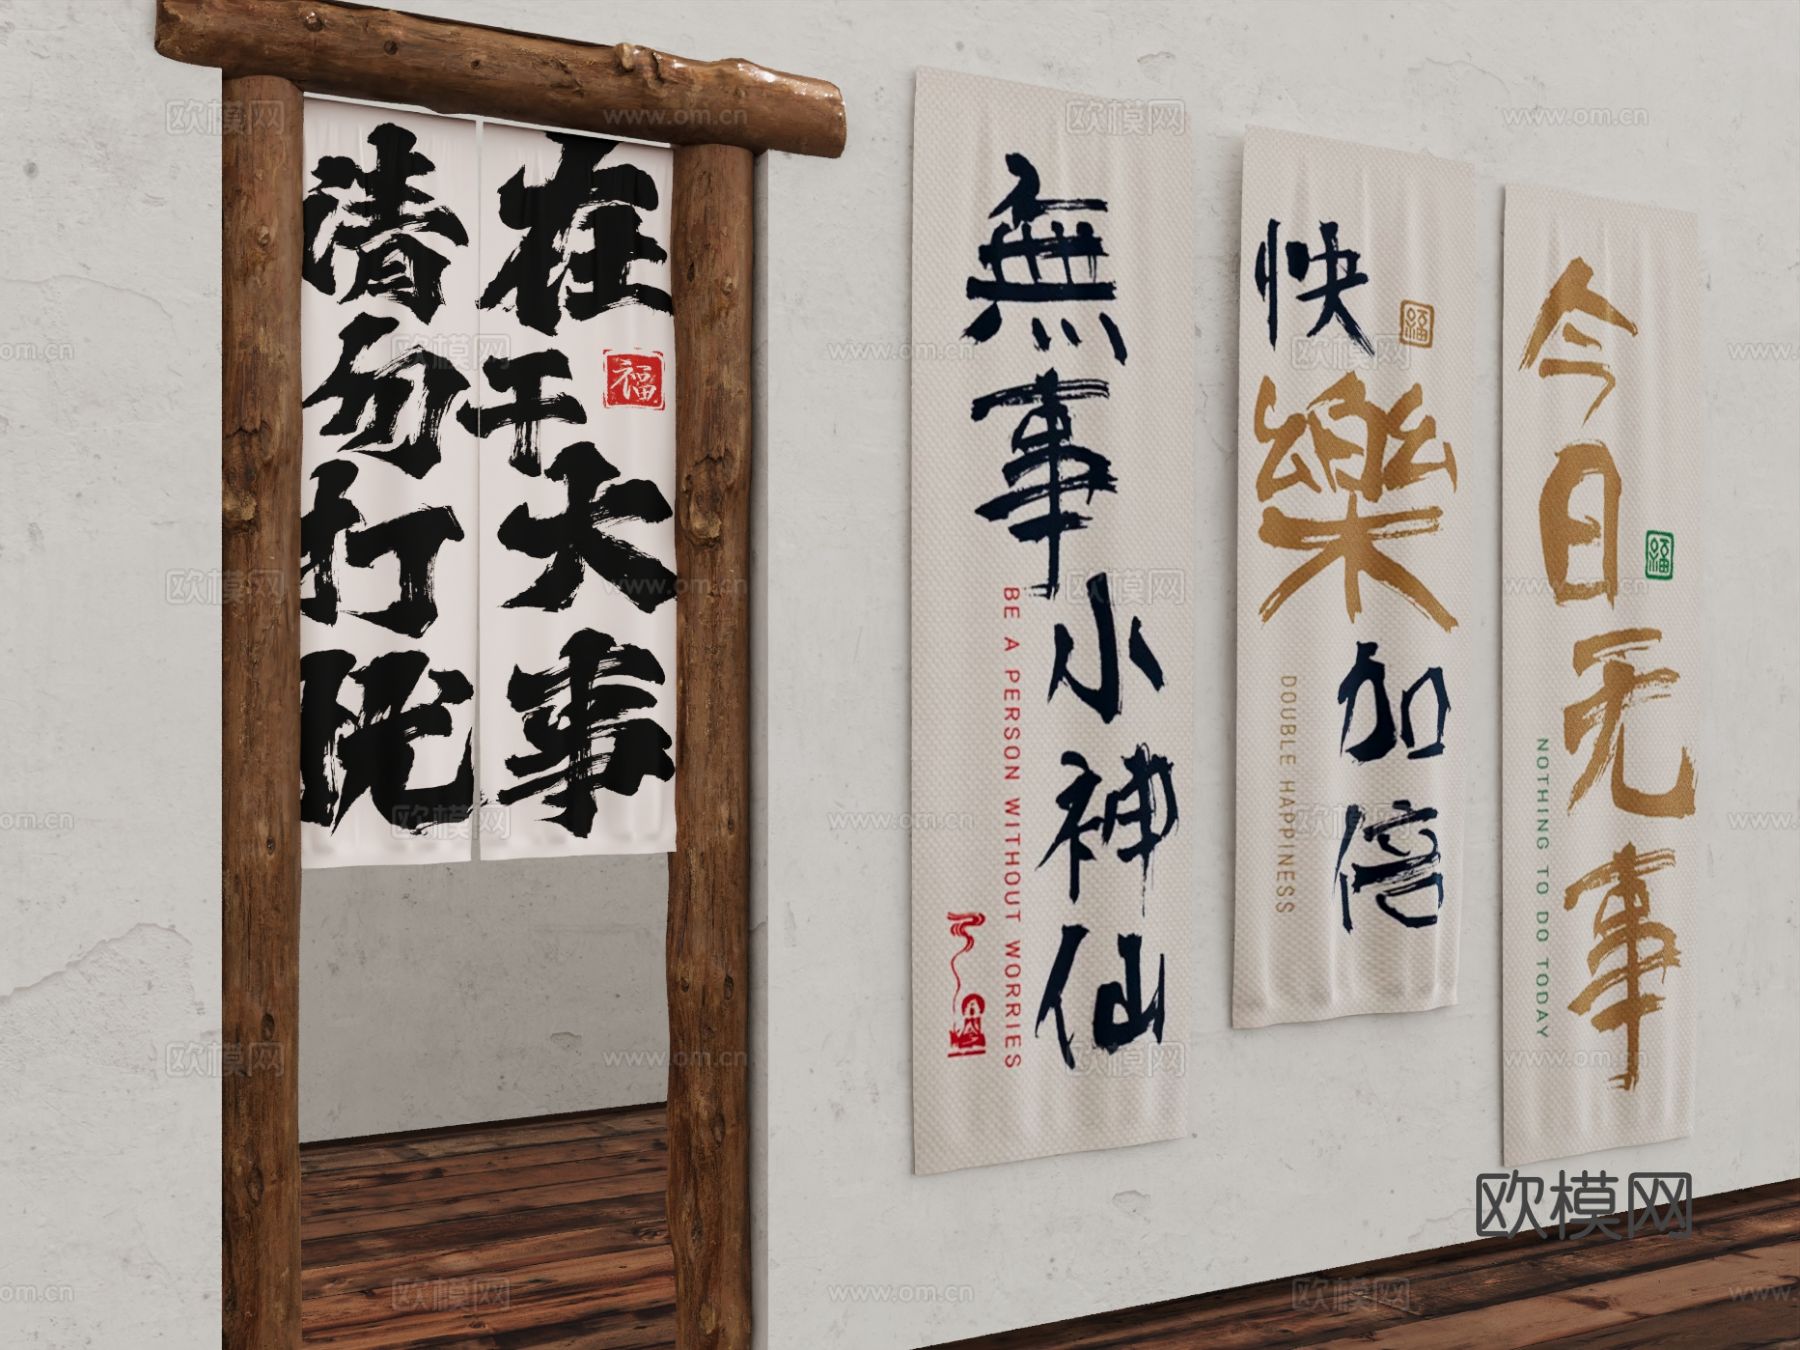 在干大事
福
清勿打扰
無事小神仙
BE A PERSON WITHOUT WORRIES
快樂加倍
福
DOUBLE HAPPINESS
今日无事
福
NOTHING TO DO TODAY
欧模网
www.om.cn